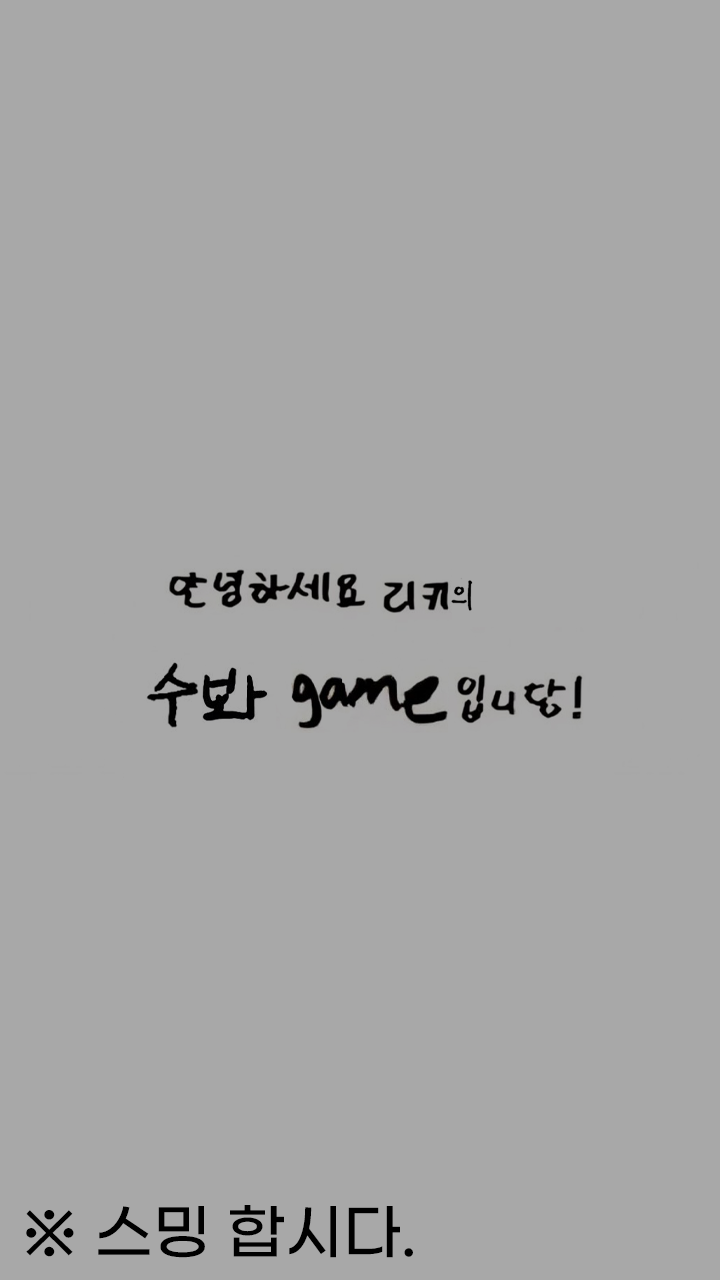 안녕하세요 리키의
수봐 game입니닿!
※ 스밍 합시다.